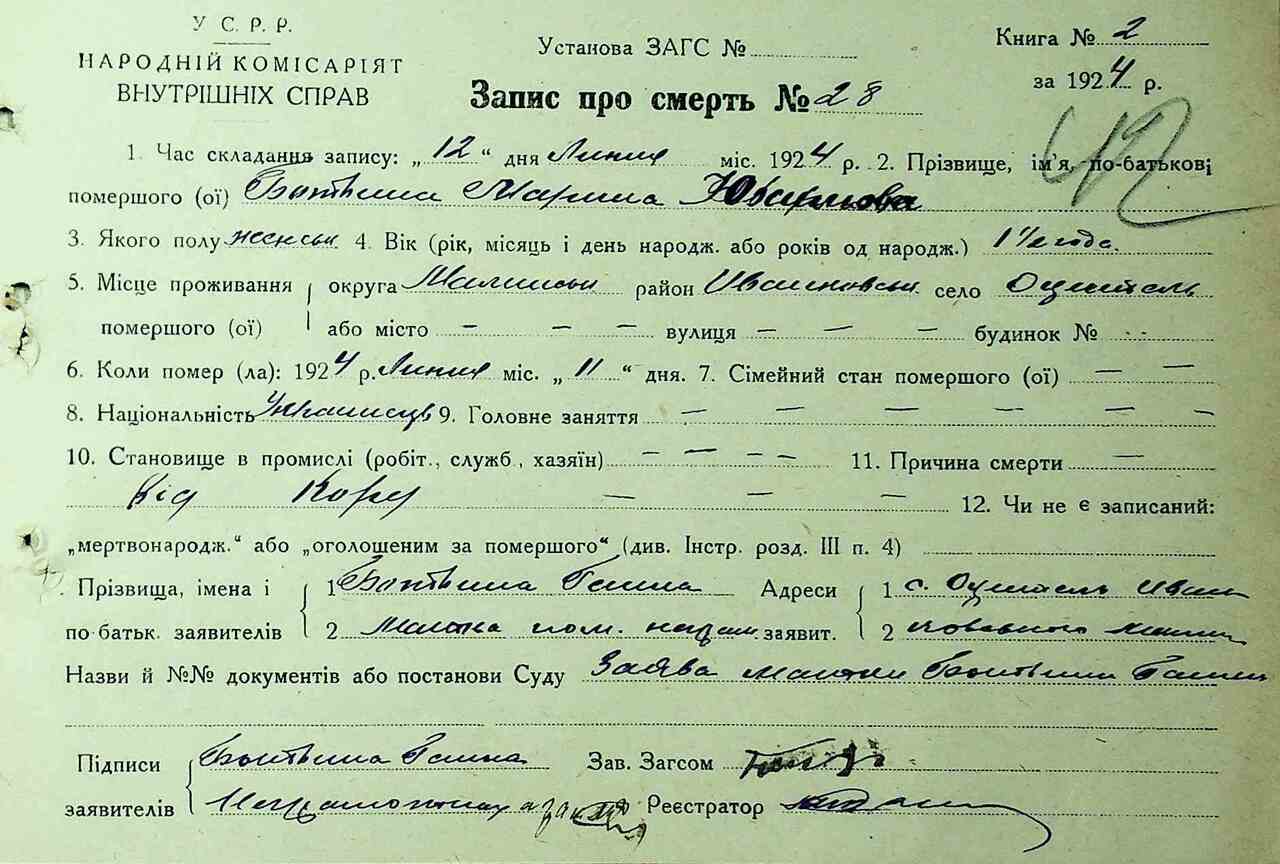 У С. Р. Р.
НАРОДНІЙ КОМІСАРІЯТ
ВНУТРІШНІХ СПРАВ
Установа ЗАГС №
Книга № 2
за 1924 р.
Запис про смерть № 28
1. Час складання запису: „12“ дня Липня міс. 1924 р. 2. Прізвище, ім'я, по-батькові
помершого (ої) Ботвина Марина
3. Якого полу женськ. 4. Вік (рік, місяць і день народж. або років од народж.) 1 1/2 года.
5. Місце проживання округа район село
помершого (ої) або місто — — — — вулиця — — — будинок № - -
6. Коли помер (ла): 1924 р. Липня міс. „11“ дня. 7. Сімейний стан помершого (ої) — —
8. Національність 9. Головне заняття — — — — — —
10. Становище в промислі (робіт., служб, хазяїн) — — — — 11. Причина смерти —
Від Кору — — — 12. Чи не є записаний:
„мертвонародж.“ або „оголошеним за помершого“ (див. Інстр. розд. III п. 4)
Прізвища, імена і 1 Ботвина Ганна Адреси 1 с.
по батьк. заявителів 2 Матка заявит. 2
Назви й №№ документів або постанови Суду Заява матки Ботвини Ганни
Підписи Ботвина Ганна Зав. Загсом
заявителів Реєстратор